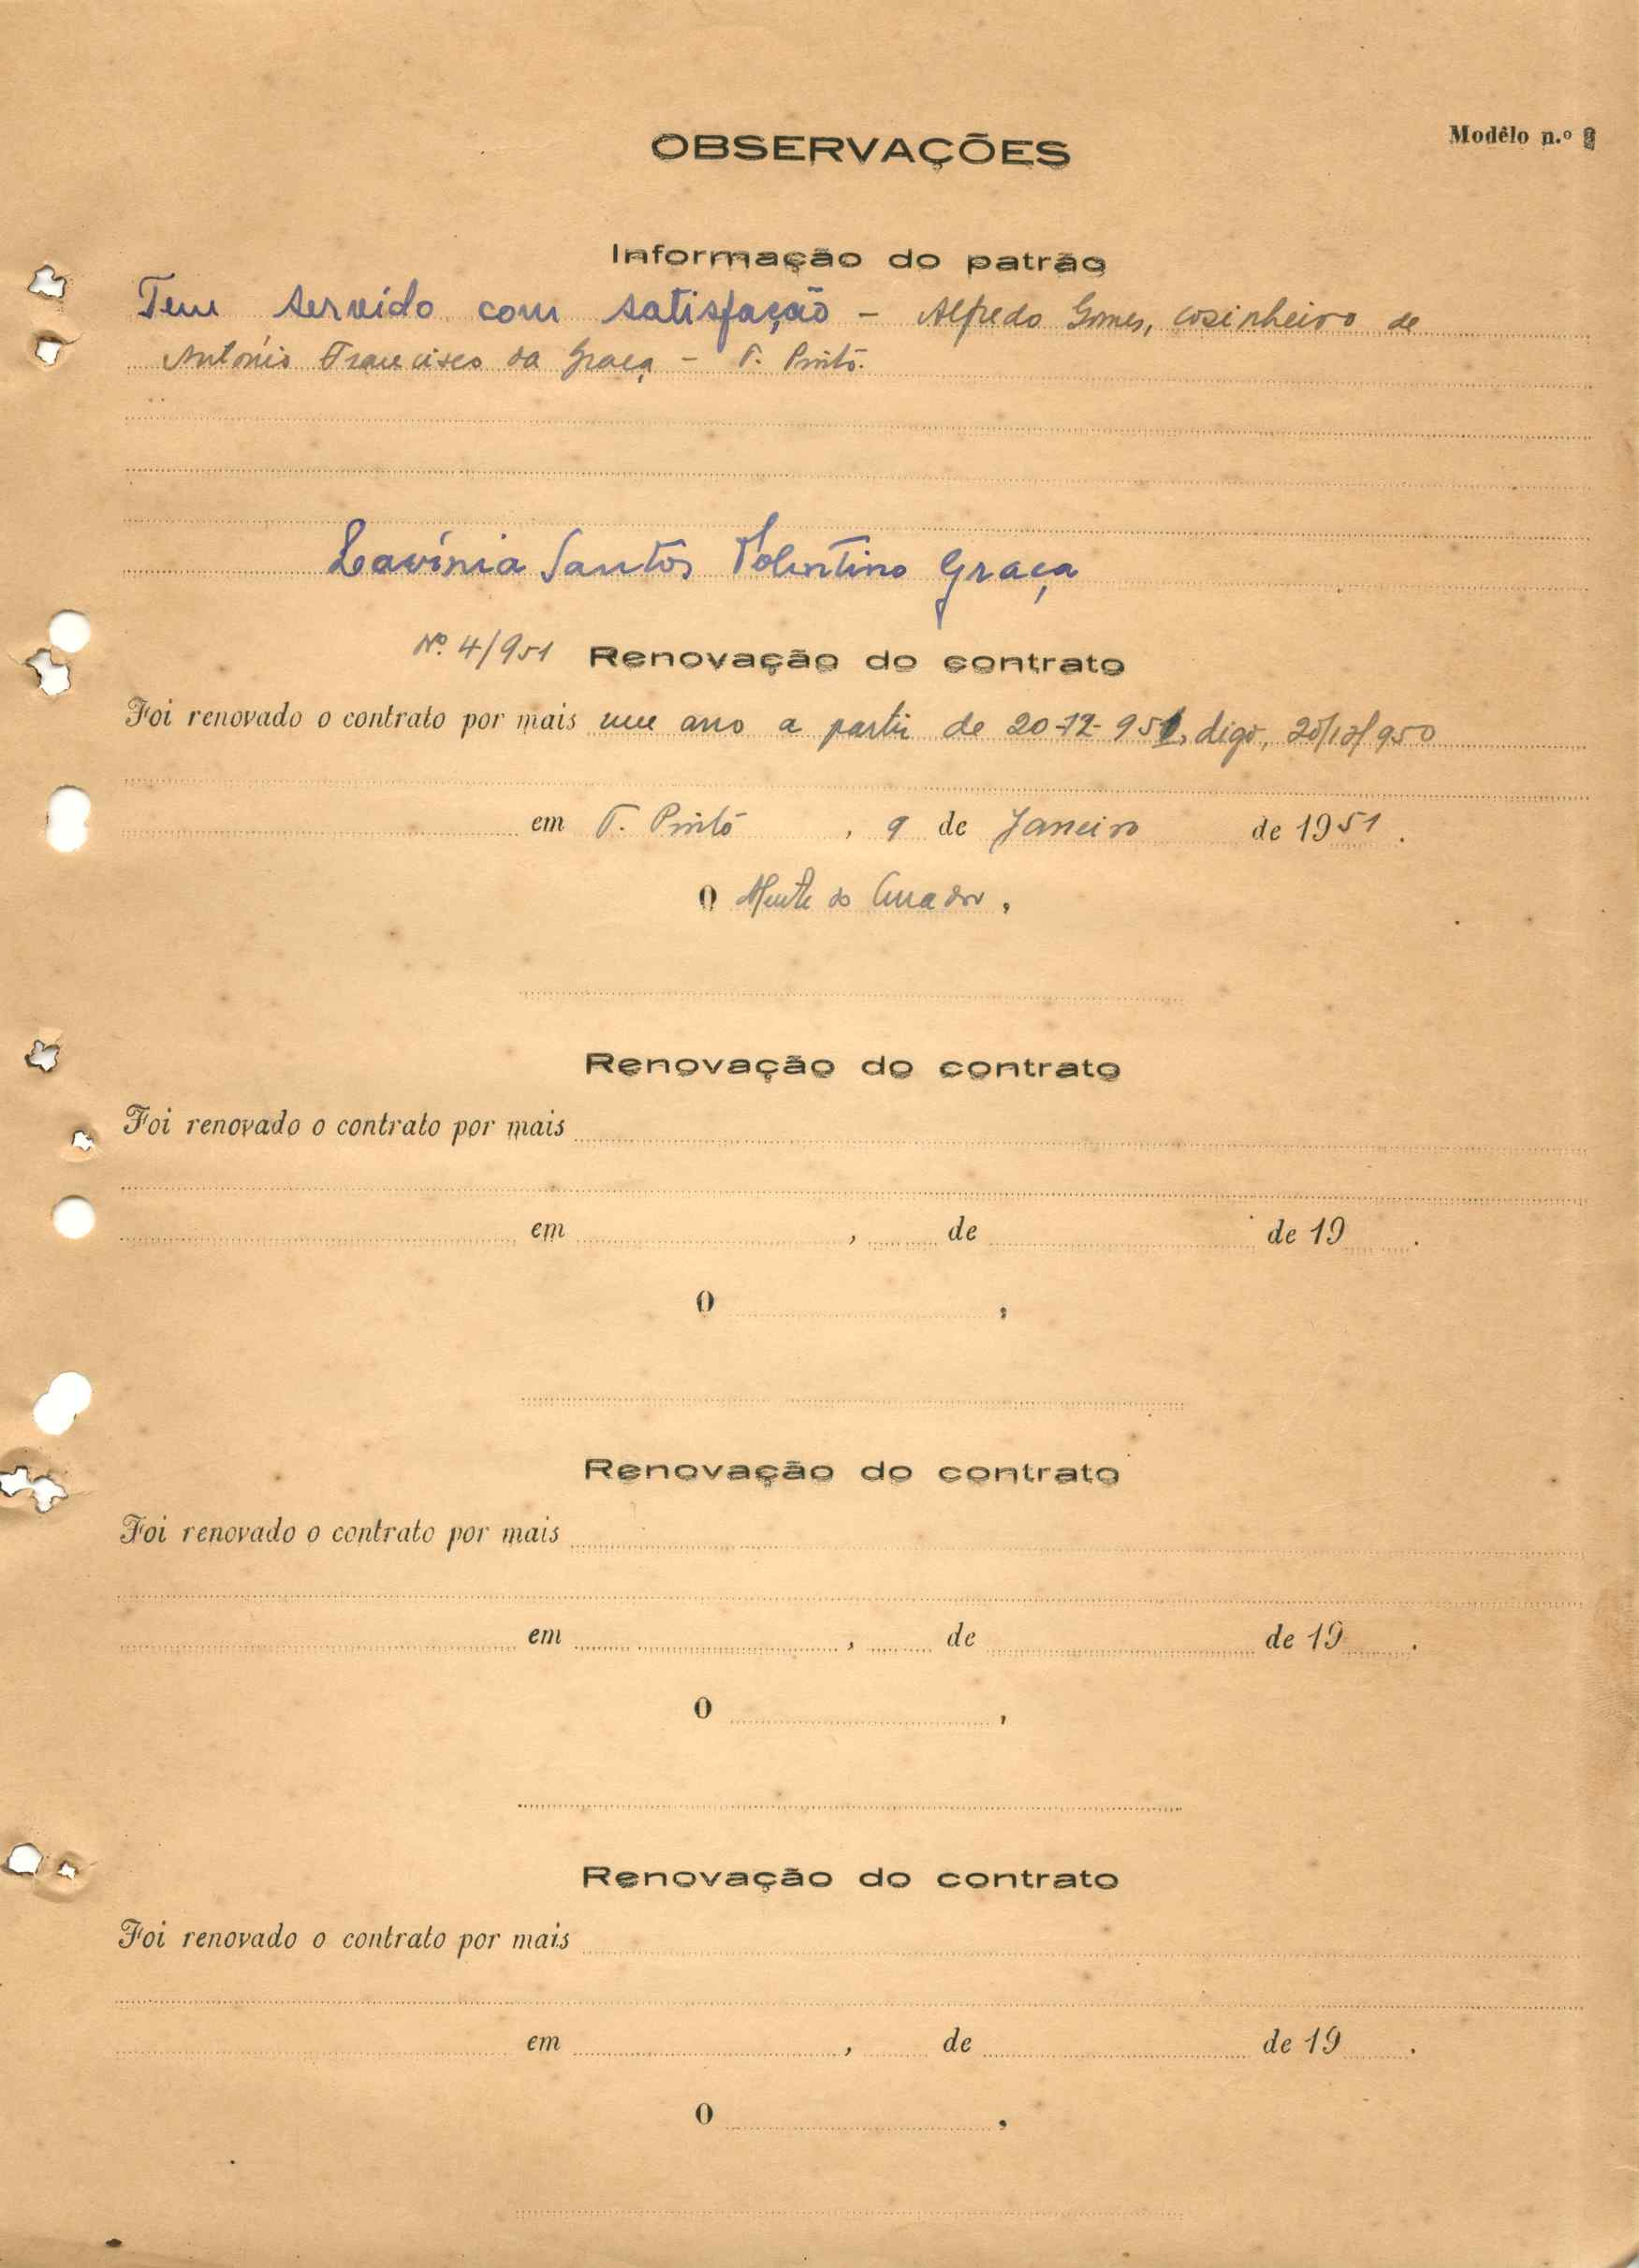 OBSERVAÇÕES
Modêlo n.º
Informação do patrão
Tem servido com satisfação – Alfredo Gomes, cosinheiro de
António Francisco da Graça – T. Pinto.
Lavínia Santos Tolentino Graça
Nº. 4/951 Renovação do contrato
Foi renovado o contrato por mais um ano a partir de 20-12-951, digo, 20/12/950
em T. Pinto , 9 de Janeiro de 1951 .
O do ,
Renovação do contrato
Foi renovado o contrato por mais
em , de de 19 .
O ,
Renovação do contrato
Foi renovado o contrato por mais
em , de de 19 .
O ,
Renovação do contrato
Foi renovado o contrato por mais
em , de de 19 .
O ,